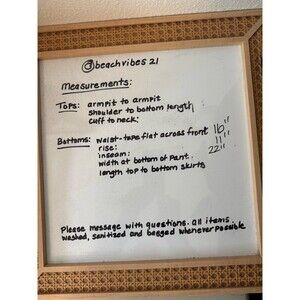 @beachvibes21
Measurements:
Tops: armpit to armpit
shoulder to bottom length
cuff to neck:
Bottoms: waist-tape flat across front 16"
rise: 11"
inseam: 22"
width at bottom of pant.
length top to bottom skirts
Please message with questions. All items
washed, sanitized and bagged whenever possible